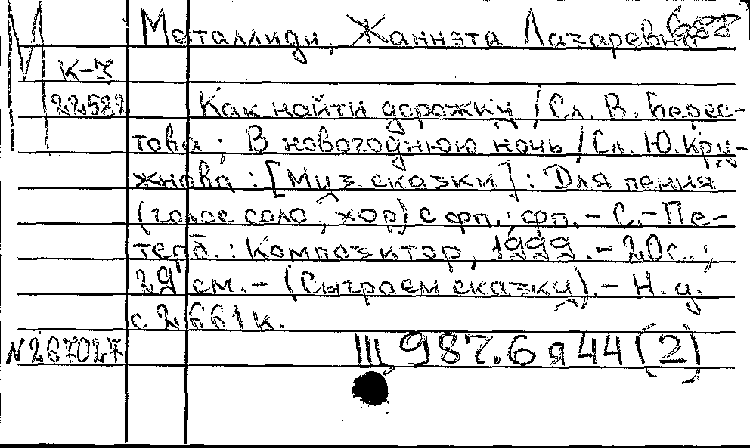 М
Металлиди, Жаннэта Лазаревна
688
К-3
22582
Как найти дорожку / Сл. В. Берес-
това; В новогоднюю ночь / Сл. Ю. Кру-
жнова : [Муз. сказки] : Для пения
(голос соло, хор) с фп.; фп. - С.-Пе-
терб. : Композитор, 1999. - 20 с.;
29 см. - (Сыграем сказку). - Н. д.
с 2661 к.
N267027
III 987.6 я 44 (2)